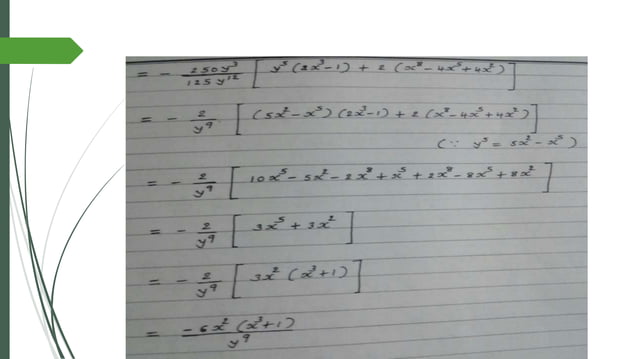 = - 250y³/125y¹² [ y⁵(2x³-1) + 2 (x⁸-4x⁵+4x²) ]
= - 2/y⁹ [ (5x²-x⁵)(2x³-1) + 2 (x⁸-4x⁵+4x²) ]
(∵ y⁵ = 5x²-x⁵)
= - 2/y⁹ [ 10x⁵-5x²-2x⁸+x⁵+2x⁸-8x⁵+8x² ]
= - 2/y⁹ [ 3x⁵+3x² ]
= - 2/y⁹ [ 3x² (x³+1) ]
= -6x² (x³+1)/y⁹